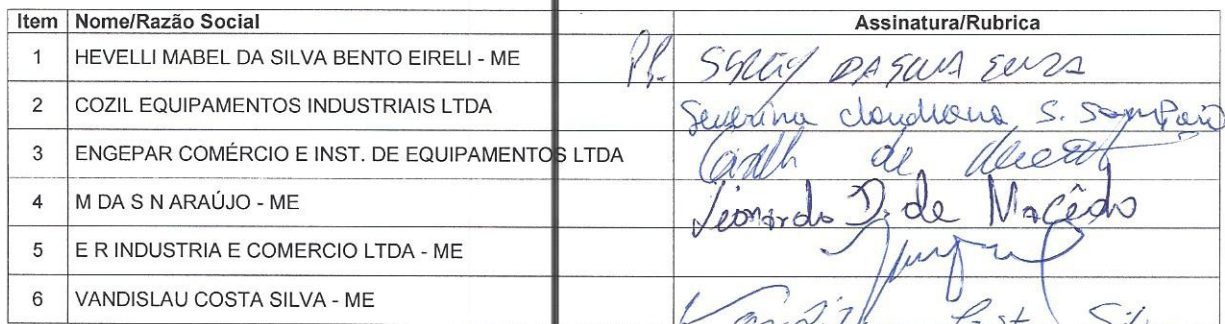 Item Nome/Razão Social Assinatura/Rubrica
1 HEVELLI MABEL DA SILVA BENTO EIRELI - ME PP. DA SILVA
2 COZIL EQUIPAMENTOS INDUSTRIAIS LTDA Severina Claudiana S. Sampaio
3 ENGEPAR COMÉRCIO E INST. DE EQUIPAMENTOS LTDA de
4 M DA S N ARAÚJO - ME Leonardo D. de Macêdo
5 E R INDUSTRIA E COMERCIO LTDA - ME
6 VANDISLAU COSTA SILVA - ME Costa Silva